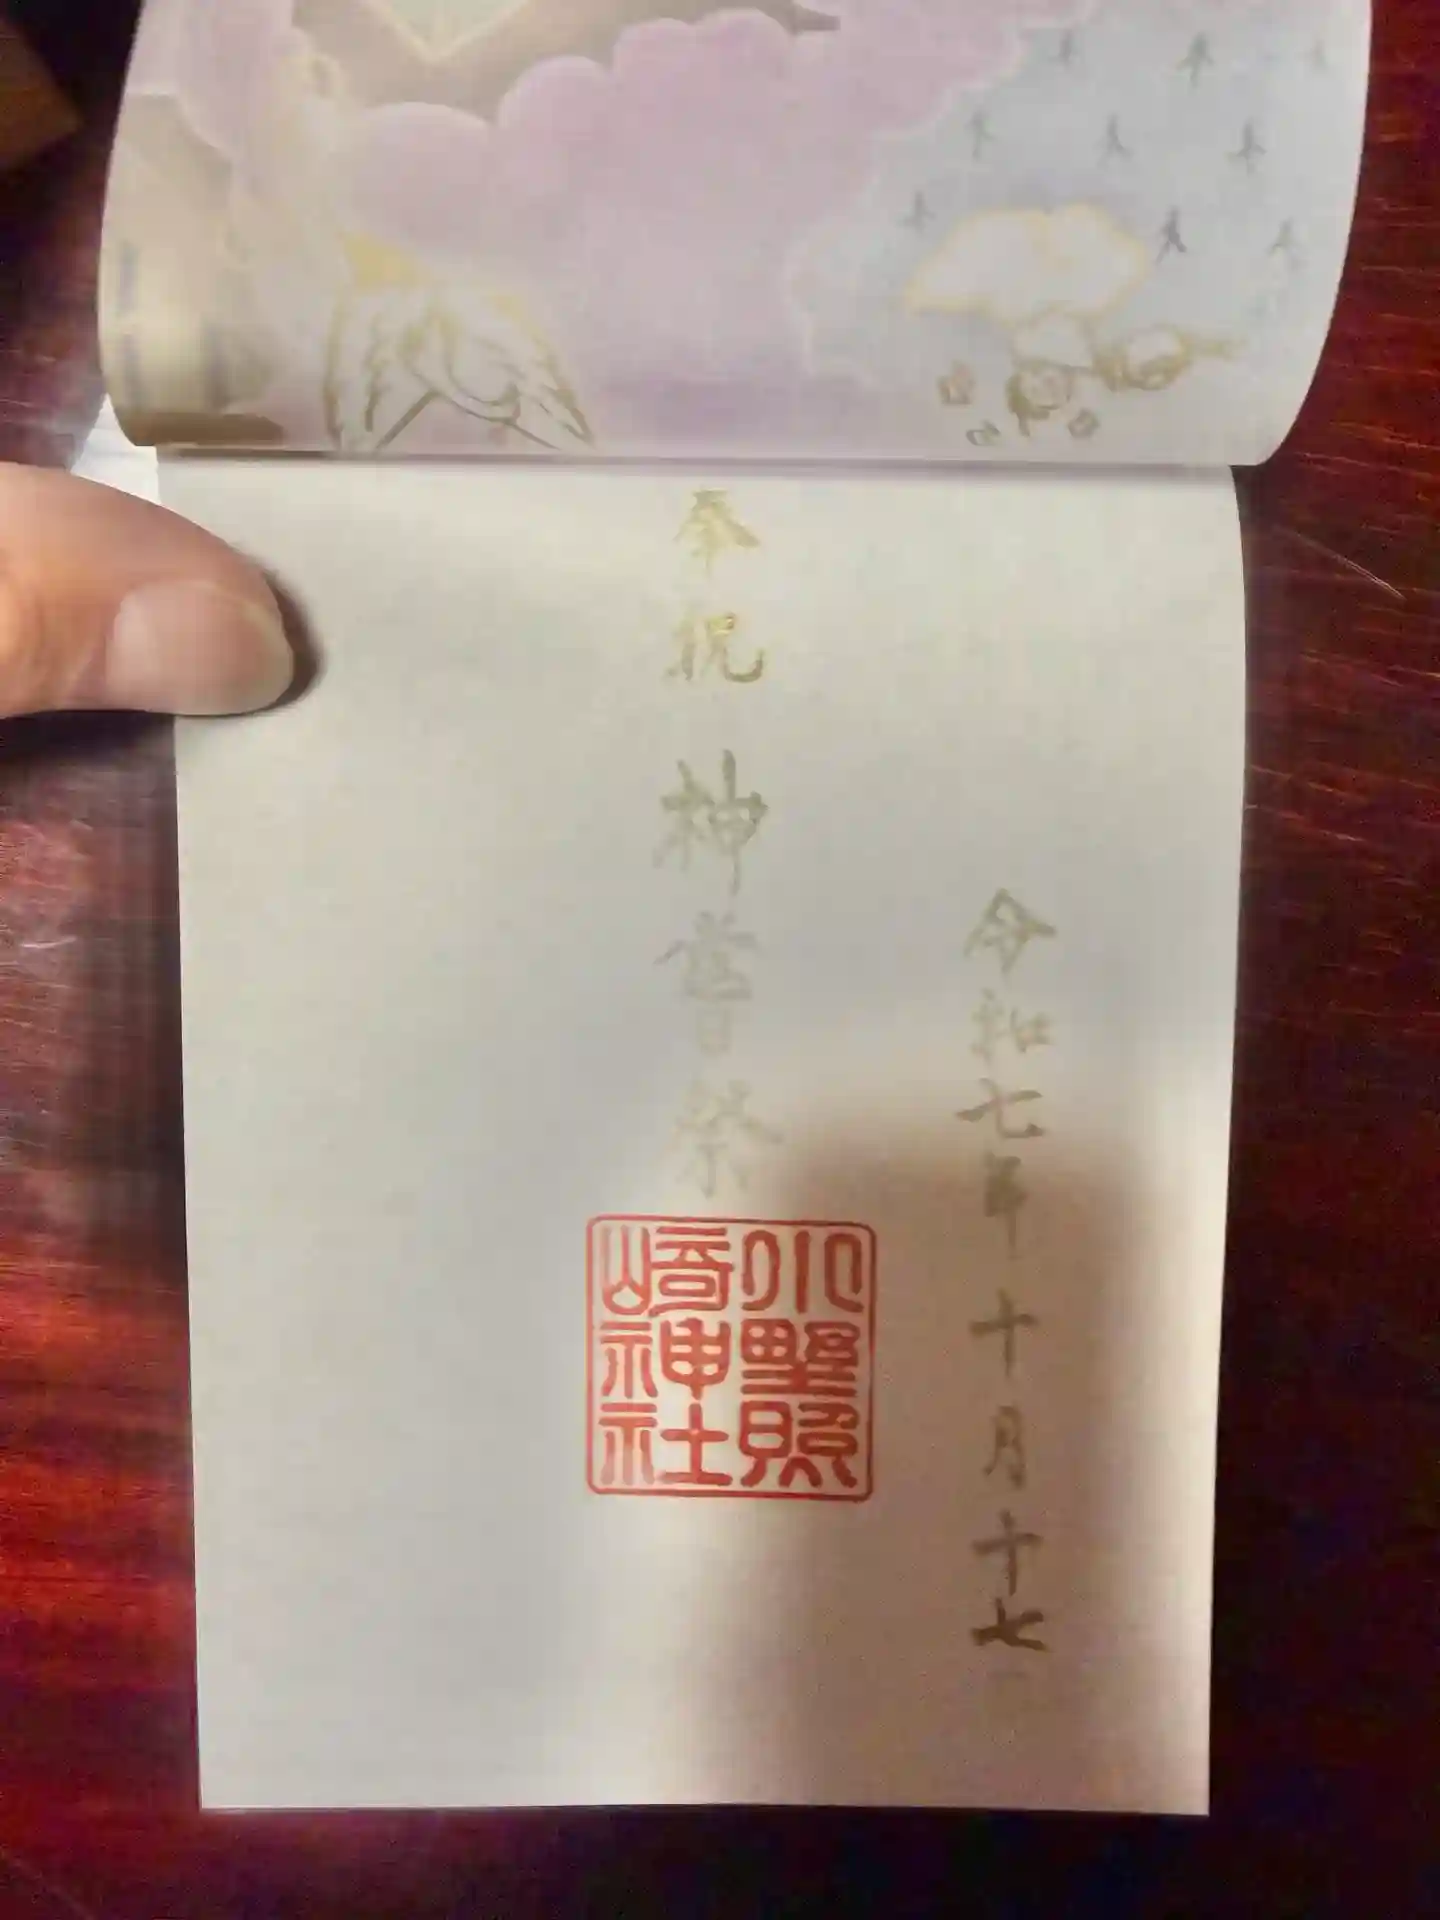 令和七年十月十七
奉祝 神嘗祭
小野照
崎神社